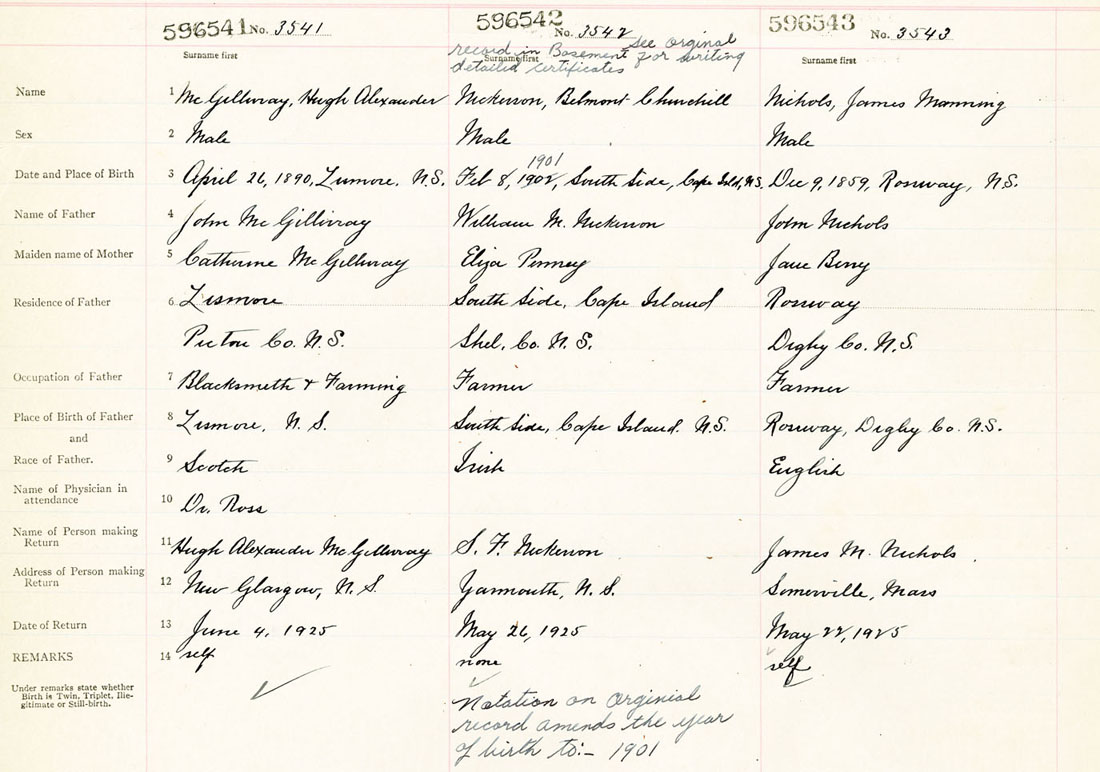 596541 No. 3541
596542 No. 3542
596543 No. 3543
see orginal
record in Basement for writing
detailed certificates
Surname first
Surname first
Surname first
Name 1 McGillivray, Hugh Alexander Nickerson, Belmont Churchill Nichols, James Manning
Sex 2 Male Male Male
1901
Date and Place of Birth 3 April 26, 1890, Lismore, N.S. Feb 8, 1902, South Side, Cape Isld, N.S. Dec 9, 1859, Rossway, N.S.
Name of Father 4 John McGillivray William M. Nickerson John Nichols
Maiden name of Mother 5 Catherine McGillivray Eliza Penney Jane Berry
Residence of Father 6 Lismore South Side, Cape Island Rossway
Pictou Co. N.S. Shel. Co. N.S. Digby Co. N.S.
Occupation of Father 7 Blacksmith & Farming Farmer Farmer
Place of Birth of Father 8 Lismore, N.S. South Side, Cape Island. N.S. Rossway, Digby Co. N.S.
and
Race of Father. 9 Scotch Irish English
Name of Physician in
attendance 10 Dr. Ross
Name of Person making
Return 11 Hugh Alexander McGillivray S. F. Nickerson James M. Nichols
Address of Person making
Return 12 New Glasgow, N.S. Yarmouth, N.S. Somerville, Mass
Date of Return 13 June 4, 1925 May 26, 1925 May 22, 1925
REMARKS 14 self none self
Under remarks state whether
Birth is Twin, Triplet, Ille-
gitimate or Still-birth.
Notation on Orginial
record amends the year
of birth to:- 1901